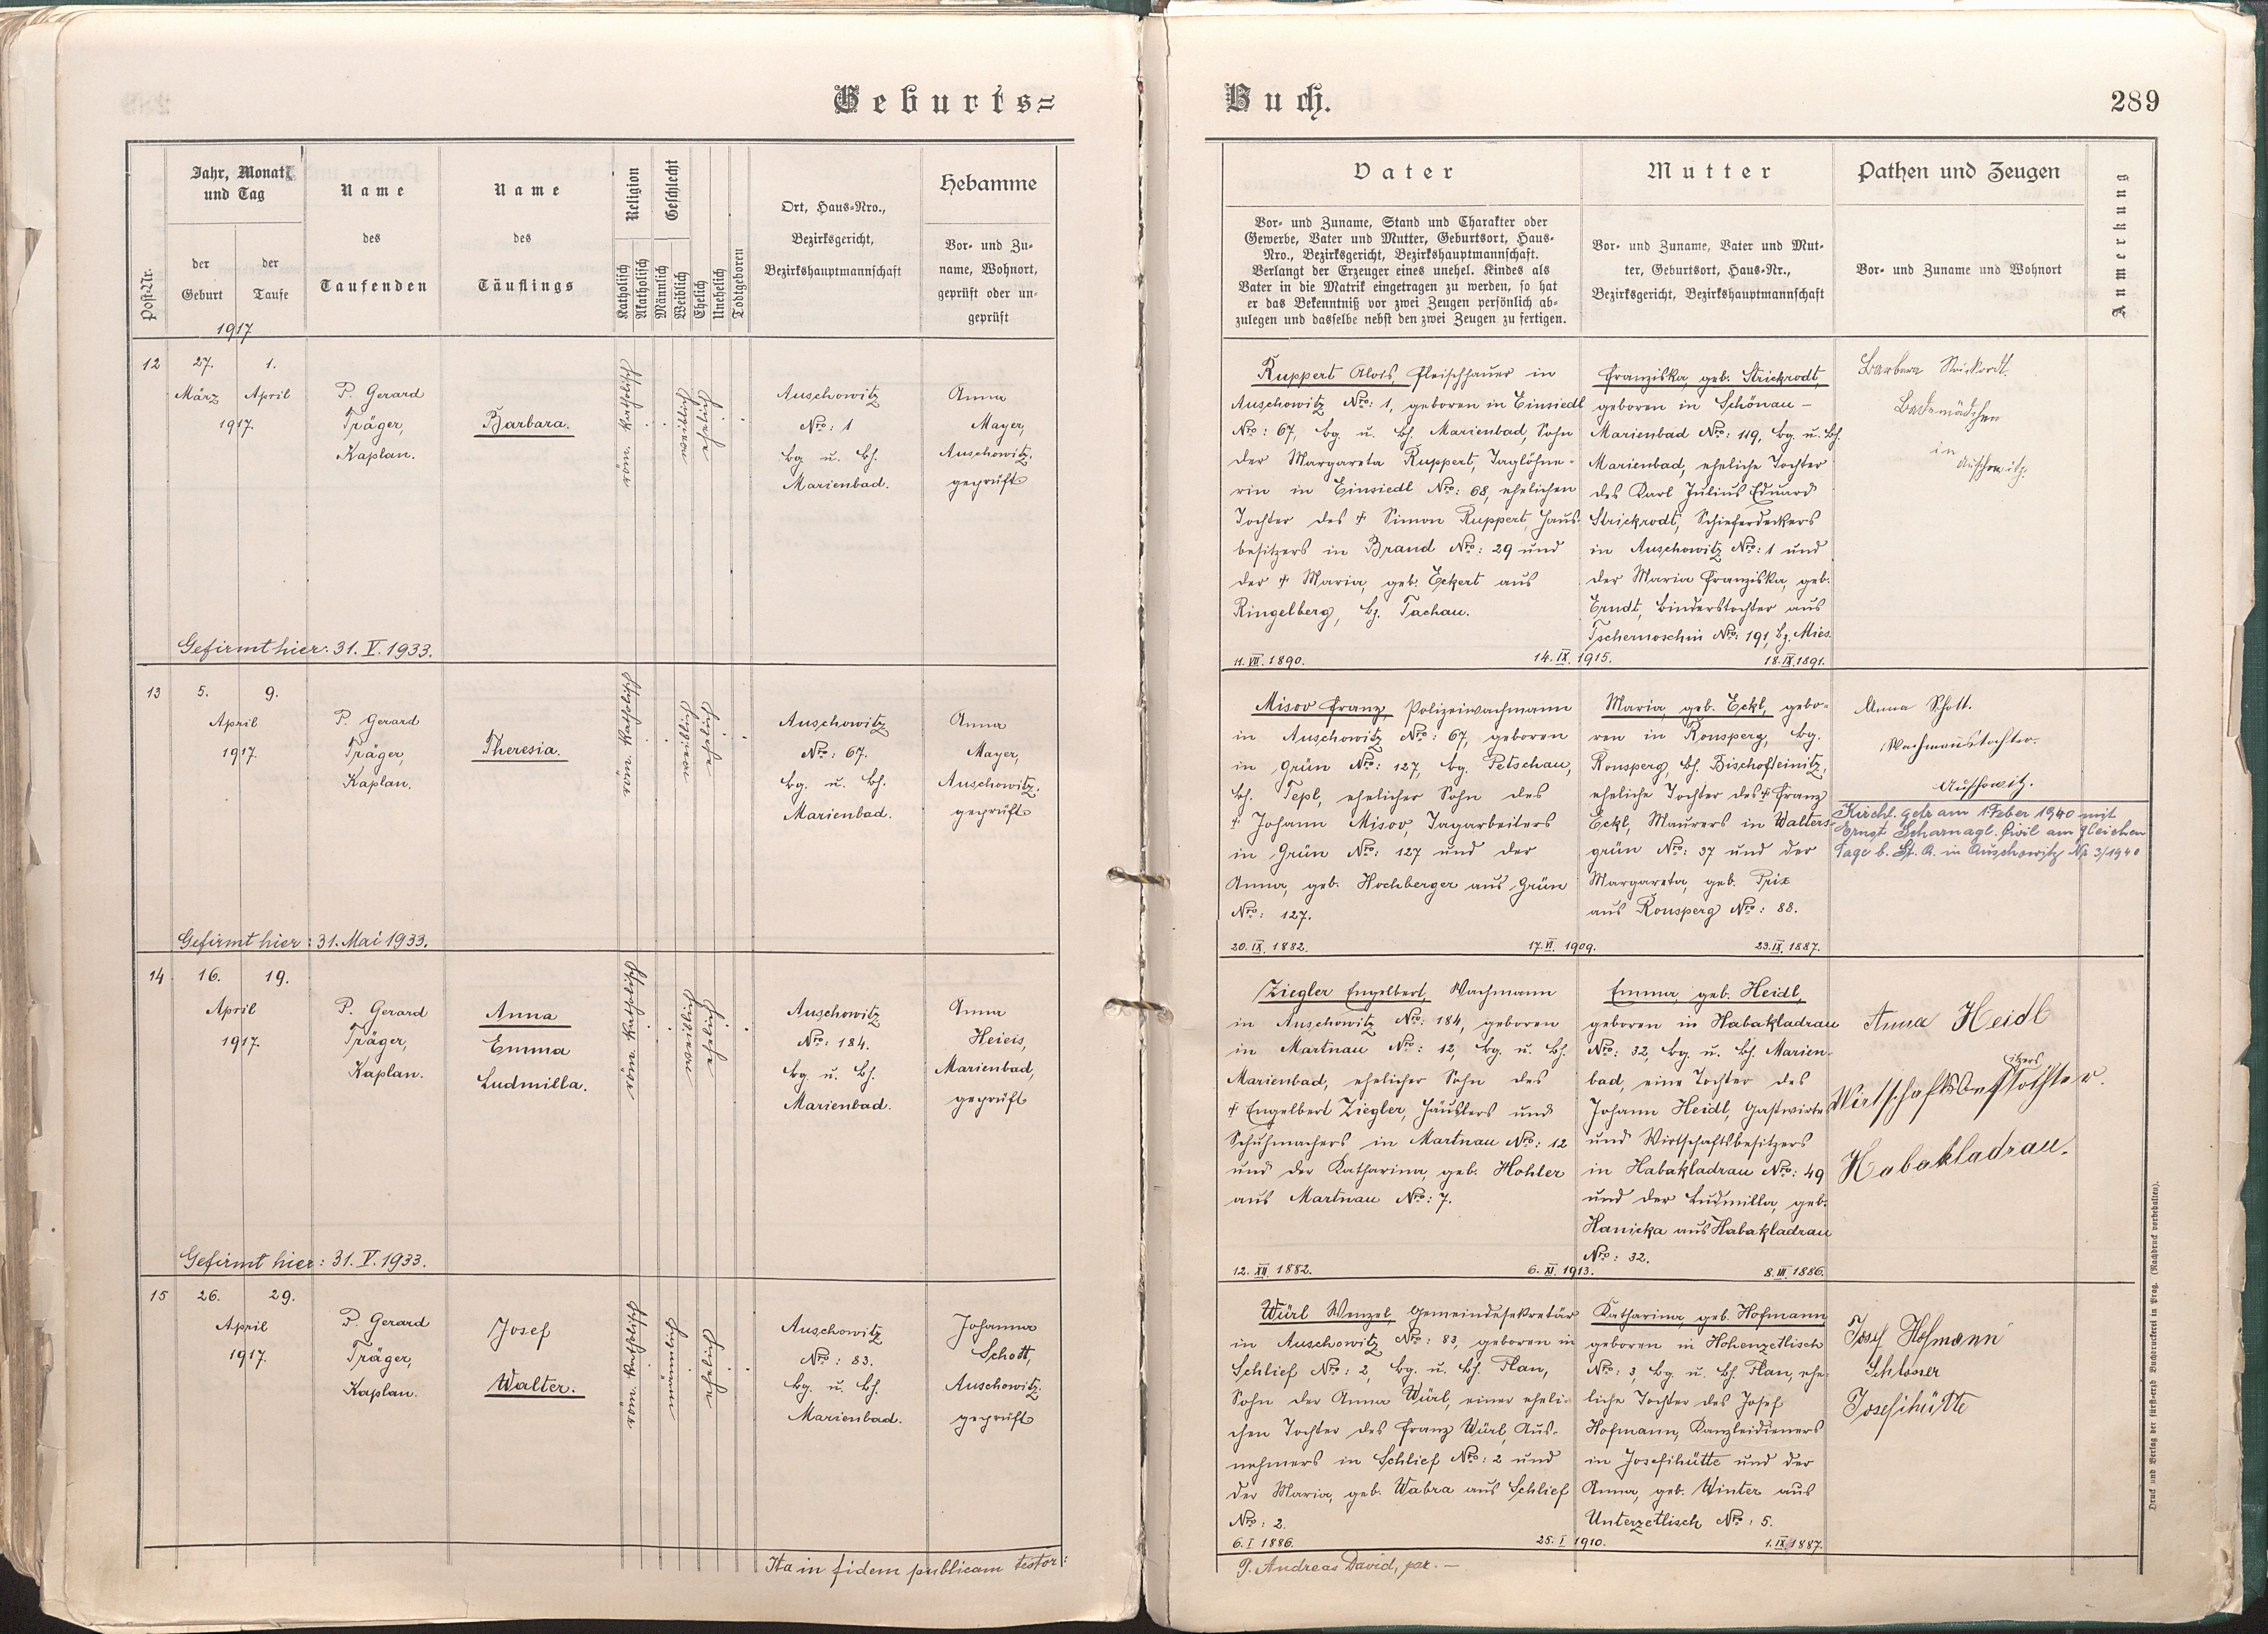 Geburts=
Jahr, Monat
und Tag
der
Geburt
der
Taufe
1917
Post-Nr.
Name
des
Taufenden
Name
des
Täuflings
Religion
Katholisch
Akatholisch
Geschlecht
Männlich
Weiblich
Ehelich
Unehelich
Todtgeboren
Ort, Haus-Nro.,
Bezirksgericht,
Bezirkshauptmannschaft
Hebamme
Vor- und Zu-
name, Wohnort,
geprüft oder un-
geprüft
12
27.
1.
März
April
1917.
P. Gerard
Träger,
Kaplan.
Barbara.
röm. katholisch
weiblich
ehelich
Auschowitz
Nro: 1
bg u. bh.
Marienbad.
Anna
Mayer,
Auschowitz.
geprüft
Gefirmt hier: 31. V. 1933.
13
5.
9.
April
1917.
P. Gerard
Träger,
Kaplan.
Theresia.
röm. katholisch
weiblich
ehelich
Auschowitz
Nro: 67.
bg. u. bh.
Marienbad.
Anna
Mayer,
Auschowitz.
geprüft
Gefirmt hier: 31. Mai 1933.
14
16.
19.
April
1917.
P. Gerard
Träger,
Kaplan.
Anna
Emma
Ludmilla.
röm. katholisch
weiblich
ehelich
Auschowitz
Nro: 184.
bg u. bh.
Marienbad.
Anna
Heieis,
Marienbad,
geprüft
Gefirmt hier: 31. V. 1933.
15
26.
29.
April
1917.
P. Gerard
Träger,
Kaplan.
Josef
Walter.
röm. katholisch
männlich
ehelich
Auschowitz
Nro: 83.
bg. u. bh.
Marienbad.
Johanna
Schott,
Auschowitz.
geprüft
Ita in fidem publicam testor:
Buch.
289
Vater
Vor- und Zuname, Stand und Charakter oder
Gewerbe, Vater und Mutter, Geburtsort, Haus-
Nro., Bezirksgericht, Bezirkshauptmannschaft.
Verlangt der Erzeuger eines unehel. Kindes als
Vater in die Matrik eingetragen zu werden, so hat
er das Bekenntniß vor zwei Zeugen persönlich ab-
zulegen und dasselbe nebst den zwei Zeugen zu fertigen.
Mutter
Vor- und Zuname, Vater und Mut-
ter, Geburtsort, Haus-Nr.,
Bezirksgericht, Bezirkshauptmannschaft
Pathen und Zeugen
Vor- und Zuname und Wohnort
Anmerkung
Ruppert Alois, Fleischhauer in
Auschowitz Nro: 1, geboren in Einsiedl
Nro: 67, bg. u. bh. Marienbad, Sohn
der Margareta Ruppert, Taglöhne-
rin in Einsiedl Nro: 68, ehelichen
Tochter des † Simon Ruppert, Haus-
besitzers in Brand Nro: 29 und
der † Maria, geb. Eckert aus
Ringelberg, bz. Tachau.
11. VII. 1890.
14. IX. 1915.
Franziska, geb. Strickrodt,
geboren in Schönau -
Marienbad Nro: 119, bg. u. bh.
Marienbad, eheliche Tochter
des Karl Julius Eduard
Strickrodt, Schieferdeckers
in Auschowitz Nro: 1 und
der Maria Franziska, geb.
Erndt, Binderstochter aus
Tschernoschin Nro: 191, bz. Mies.
18. IX. 1891.
Barbara Strickrodt.
Bademädchen
in
Auschowitz.
Misov Franz, Polizeiwachmann
in Auschowitz Nro: 67, geboren
in Grün Nro: 127, bg. Petschau,
bh. Tepl, ehelicher Sohn des
† Johann Misov, Tagarbeiters
in Grün Nro: 127 und der
Anna, geb. Hochberger aus Grün
Nro: 127.
20. IX. 1882.
17. VI. 1909.
Maria, geb. Eckl, gebo-
ren in Ronsperg, bg.
Ronsperg, bh. Bischofteinitz,
eheliche Tochter des † Franz
Eckl, Maurers in Walters-
grün Nro: 37 und der
Margareta, geb. Prix
aus Ronsperg Nro: 88.
23. IX. 1887.
Anna Schott.
Wachmannstochter.
Auschowitz.
Kirchl. getr am 1 Feber 1940 mit
Ernst Scharnagl. Civil am gleichen
Tage b. St. A. in Auschowitz Nr 3/1940
Ziegler Engelbert, Wachmann
in Auschowitz Nro: 184, geboren
in Martnau Nro: 12, bg. u. bh.
Marienbad, ehelicher Sohn des
† Engelbert Ziegler, Häuslers und
Schuhmachers in Martnau Nro: 12
und der Katharina, geb. Hohler
aus Martnau Nro: 7.
12. XII. 1882.
6. XI. 1913.
Emma, geb. Heidl,
geboren in Habakladrau
Nro: 32, bg. u. bh. Marien-
bad, eine Tochter des
Johann Heidl, Gastwirts
und Wirtschaftsbesitzers
in Habakladrau Nro: 49
und der Ludmilla, geb.
Hanicka aus Habakladrau
Nro: 32.
8. III. 1886.
Anna Heidl
itzers
Wirtschaftsbestochter.
Habakladrau.
Würl Wenzel, Gemeindesekretär
in Auschowitz Nro: 83, geboren in
Schlief Nro: 2, bg. u. bh. Plan,
Sohn der Anna Würl, einer eheli-
chen Tochter des Franz Würl, Aus-
nehmers in Schlief Nro: 2 und
der Maria, geb. Wabra aus Schlief
Nro: 2.
6. I. 1886.
25. I. 1910.
Katharina, geb. Hofmann
geboren in Hohenzetlisch
Nro: 3, bg. u. bh. Plan, ehe-
liche Tochter des Josef
Hofmann, Kanzleidieners
in Josefihütte und der
Anna, geb. Winter aus
Unterzetlisch Nro: 5.
1. IX. 1887.
Josef Hofmann
Schlosser
Josefihütte
P. Andreas David, par. —
Druck und Verlag der fürst-erzb Buchdruckerei in Prag. (Nachdruck vorbehalten).